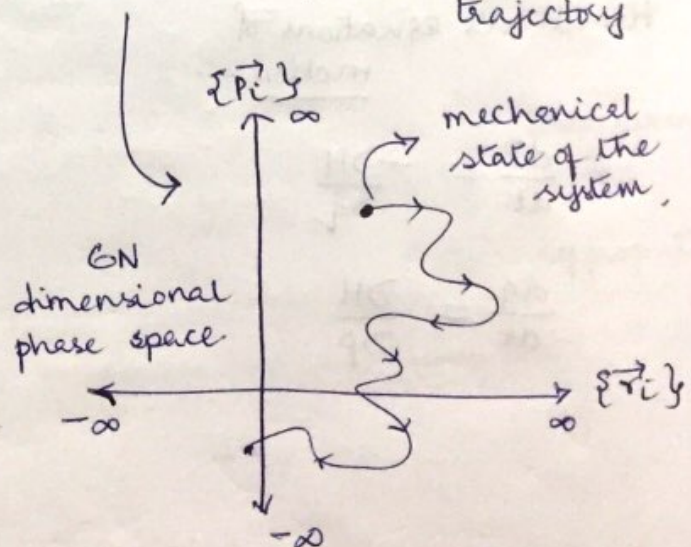 trajectory
{p⃗i}
∞
mechanical
state of the
system.
6N
dimensional
phase space
{r⃗i}
-∞
∞
-∞